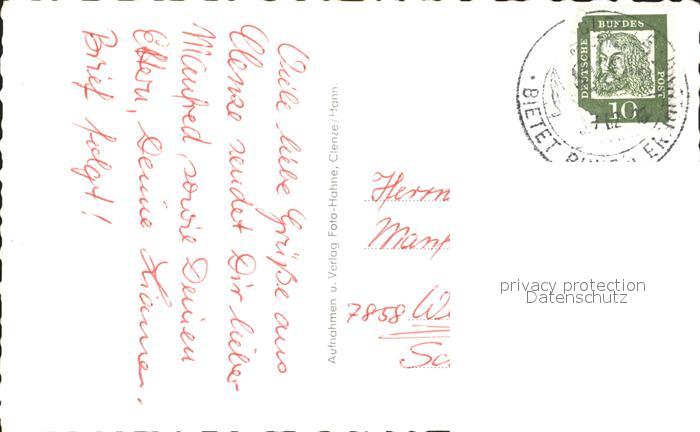 Viele liebe Grüße aus
Clenze sendet Dir lieber
Manfred, sowie Deinen
Eltern, Deine
Brief folgt!
Aufnahmen u. Verlag Foto-Hahne, Clenze/Hann.
DEUTSCHE BUNDES POST
10
BIETET
Herrn
Manf
7858 We
Sc
privacy protection
Datenschutz